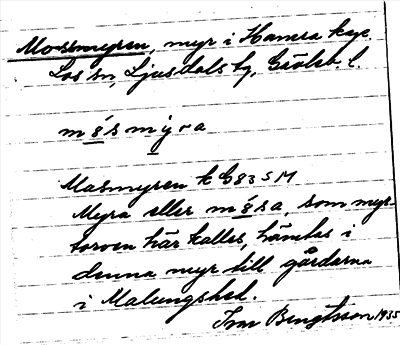 Mossmyren, myr i Hamra kpf.
Los sn, Ljusdals tg, Gävleb. l.
mo̲s my̲ra
Masmyren k G83 SM
Myra eller mo̲sa, som myr-
torven här kallas, hämtas i
denna myr till gårdarna
i Malungshed.
Ivar Bengtsson 1935